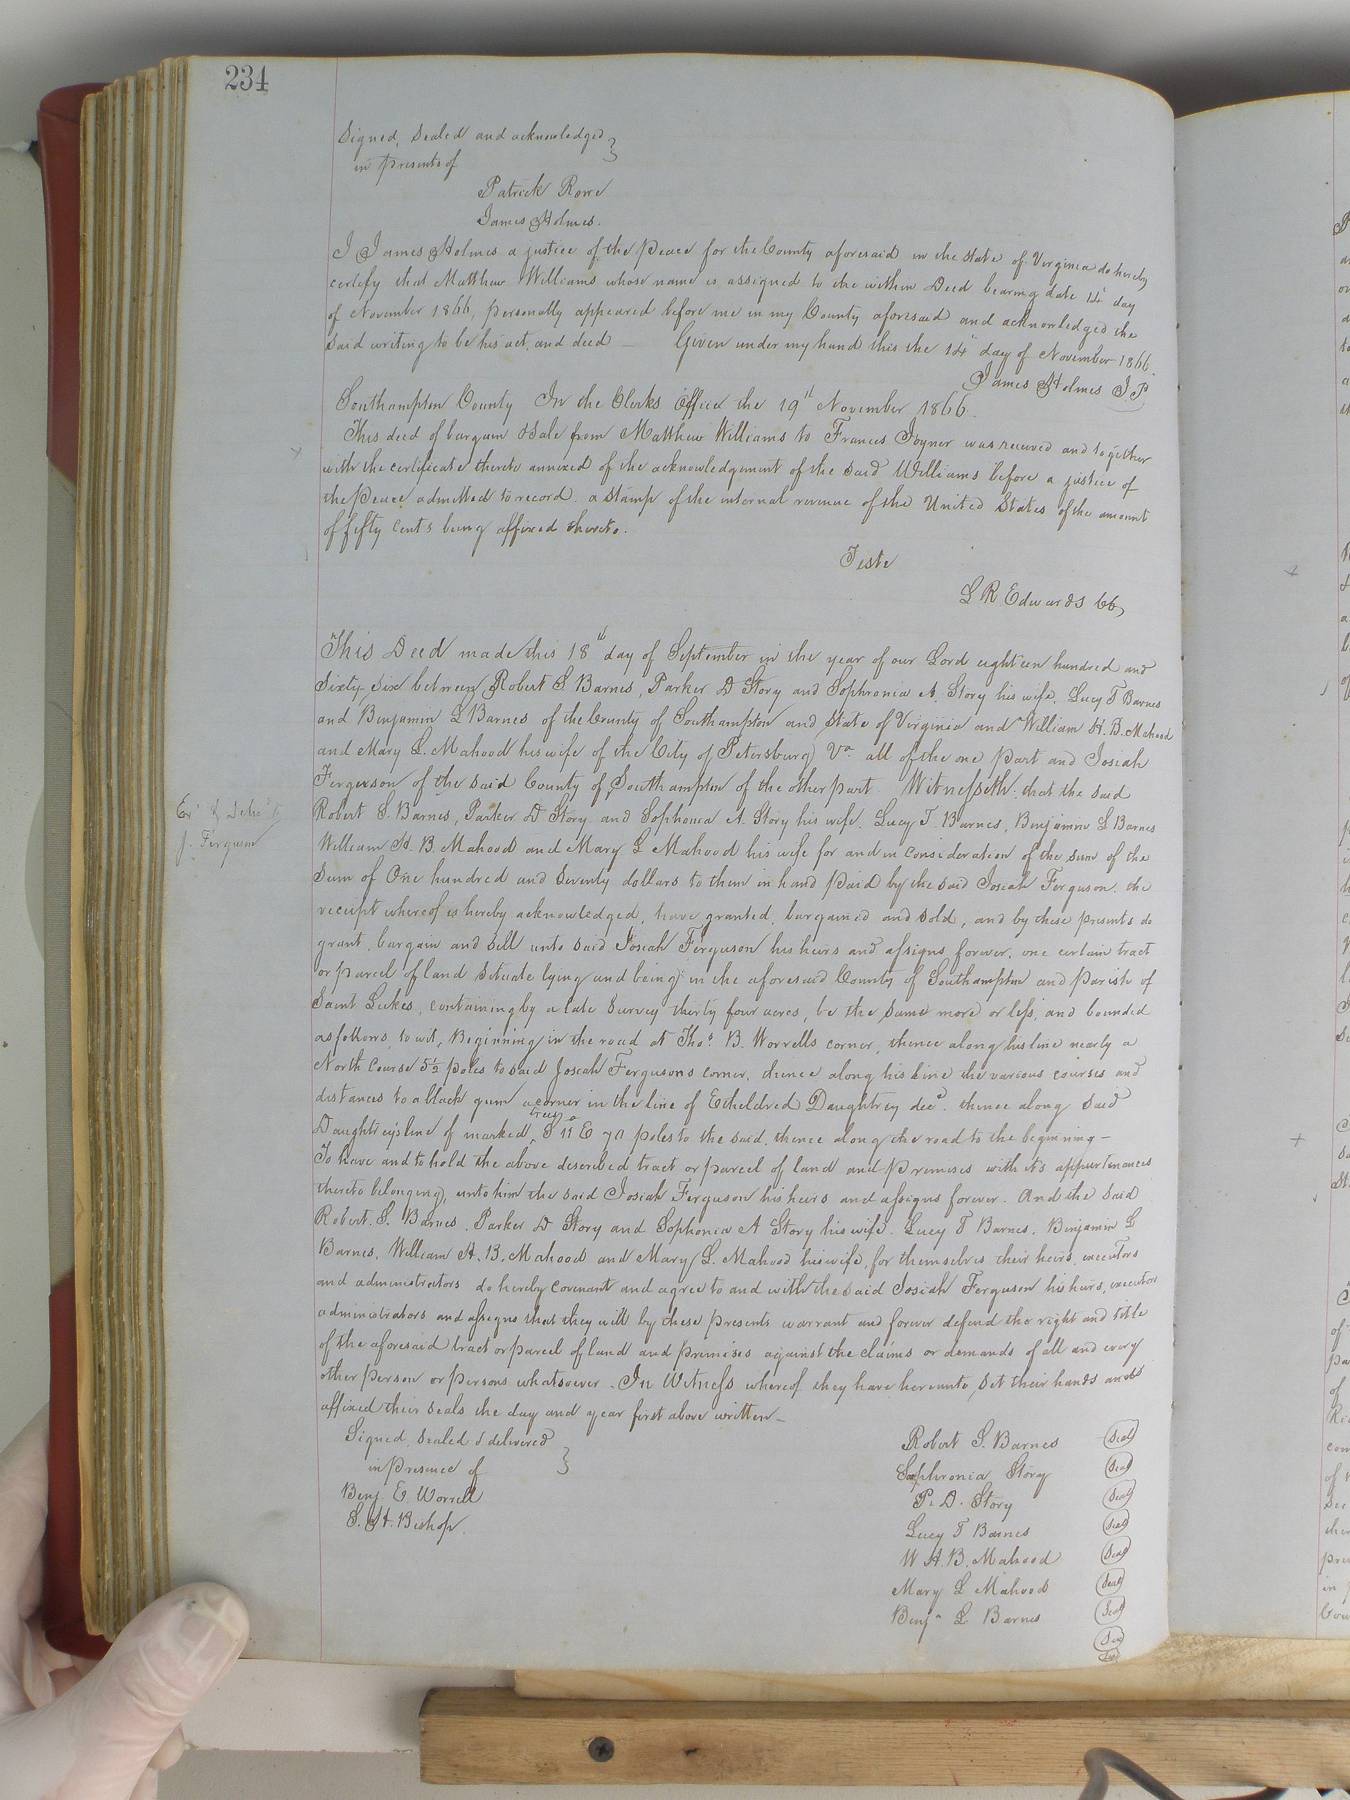 234
Signed, Sealed and acknowledged
in presents of
Patrick Rowe
James Holmes.
I James Holmes a justice of the Peace for the County aforesaid in the State of Virginia do hereby
certify that Matthew Williams whose name is assigned to the within Deed bearing date 14th day
of November 1866, personally appeared before me in my County aforesaid and acknowledged the
said writing to be his act, and deed — Given under my hand this the 14th day of November 1866.
James Holmes J.P.
Southampton County In the Clerks Office the 19th November 1866.
This deed of bargain & Sale from Matthew Williams to Frances Joyner was received and together
with the certificate thereto annexed of the acknowledgement of the said Williams before a justice of
the Peace admitted to record. a Stamp of the internal revenue of the United States of the amount
of fifty cents being affixed thereto.
Teste
L R Edwards CC,
This Deed made this 18th day of September in the year of our Lord eighteen hundred and
Sixty Six between Robert S Barnes, Parker D Story and Sophronia A. Story his wife, Lucy T Barnes
and Benjamin L Barnes of the County of Southampton and State of Virginia and William H. B. Mahood
and Mary L. Mahood his wife of the City of Petersburg Va. all of the one part and Josiah
Fergerson of the said County of Southampton of the other part Witnesseth: that the said
Robert S. Barnes, Parker D Story and Sophonia A. Story his wife. Lucy T. Barnes, Benjamin L Barnes
Exd & Deld
J. Ferguson
William H. B. Mahood and Mary L Mahood his wife for and in consideration of the sum of the
Sum of One hundred and Seventy dollars to them in hand paid by the said Josiah Ferguson. the
receipt whereof is hereby acknowledged, have granted, bargained and sold, and by these presents do
grant, bargain and sell unto said Josiah Ferguson his heirs and assigns forever, one certain tract
or parcel of land situate lying and being in the aforesaid County of Southampton and parish of
Saint Lukes, containing by a late Survey thirty four acres, be the same more or less, and bounded
as follows, to wit, Beginning in the road at Thos. B. Worrells corner, thence along his line nearly a
North Course 5½ poles to said Josiah Fergusons corner, thence along his line the various courses and
distances to a black gum a corner in the line of Etheldred Daughtrey decd. thence along said
trees
Daughtreys line of marked, S 11° E 70 poles to the said, thence along the road to the beginning —
To have and to hold the above described tract or parcel of land and premises with its appurtenances
thereto belonging, unto him the said Josiah Ferguson his heirs and assigns forever. And the said
Robert. S. Barnes. Parker D Story and Sophonia A Story his wife. Lucy T Barnes. Benjamin L
Barnes, William H. B. Mahood and Mary L. Mahood his wife, for themselves their heirs, executors
and administrators do hereby covenant and agree to and with the said Josiah Ferguson his heirs, executors
administrators and assigns that they will by these presents warrant and forever defend the right and title
of the aforesaid tract or parcel of land and premises against the claims or demands of all and every
other person or persons whatsoever. In Witness whereof they have hereunto set their hands and
affixed their seals the day and year first above written —
Signed, Sealed & delivered
in presence of
Benj. E. Worrell
S. H. Bishop.
Robert S. Barnes Seal
Sophronia Story Seal
P. D. Story Seal
Lucy T Barnes Seal
W H. B. Mahood Seal
Mary L Mahood Seal
Benja L Barnes Seal
Seal
Seal